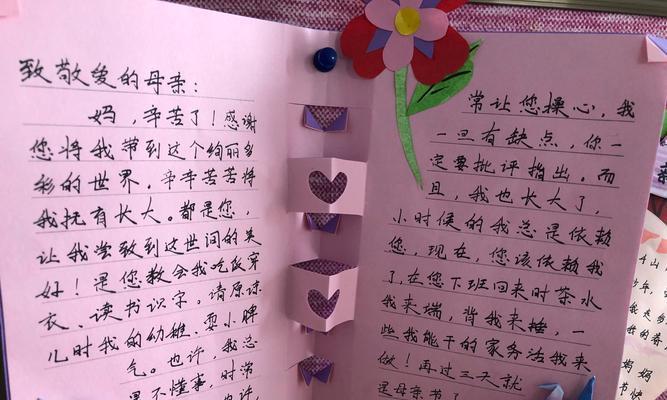 致敬爱的母亲：
妈，辛苦了！感谢
您将我带到这个绚丽多
彩的世界，辛辛苦苦将
我抚育长大。都是您，
让我尝到这世间的美
好！是您教会我吃饭穿
衣、读书识字。请原谅
儿时我的幼稚、耍小脾
气。也许，我总
是不懂事，时常
常让您操心，我
一旦有缺点，您一
定要批评指出。而
且，我也长大了，
小时候的我总是依赖
您，现在，您该依赖我
了，在您下班回来时茶水
我来端，背我来捶，一
些我能干的家务活我来
做！再过三天就
是母亲节了